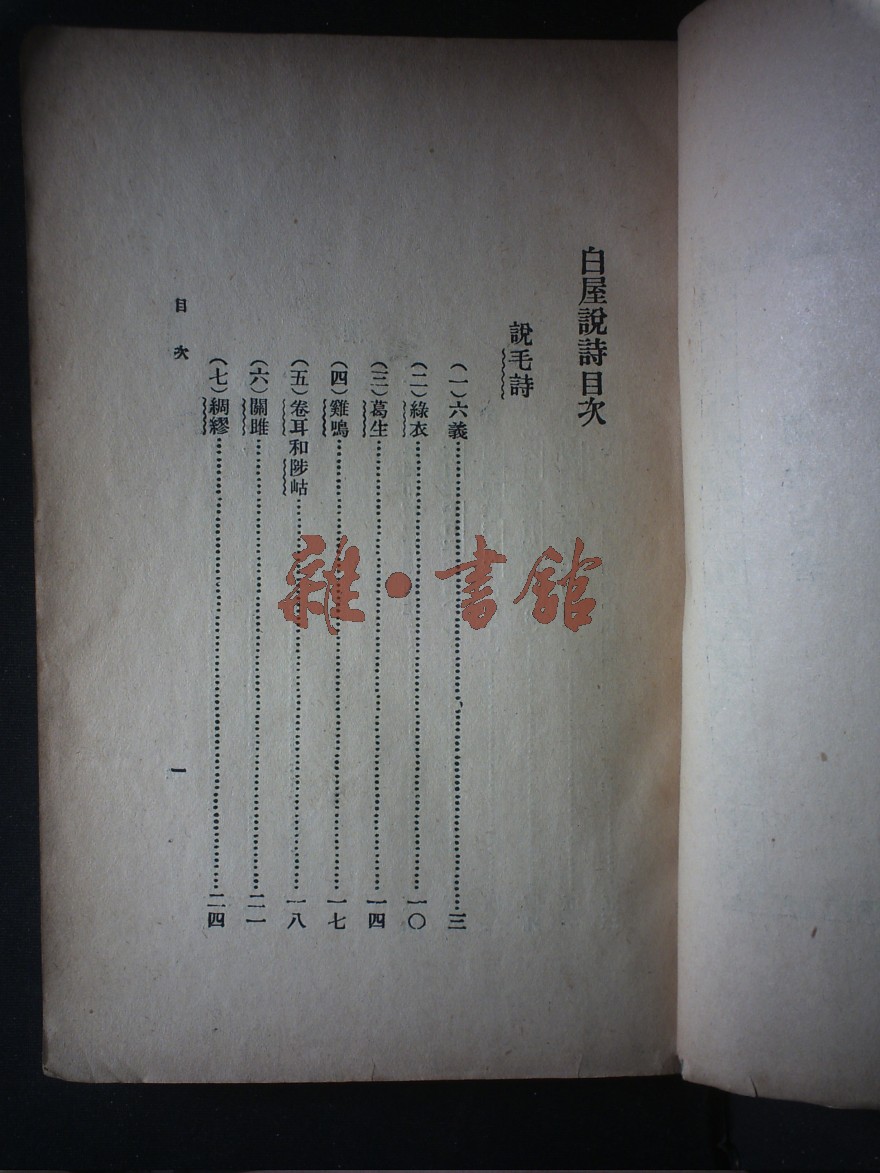 白屋說詩目次
說毛詩
（一）六義……三
（二）綠衣……一〇
（三）葛生……一四
（四）雞鳴……一七
（五）卷耳和陟岵……一八
（六）關雎……二一
（七）綢繆……二四
目次
一
雜·書館